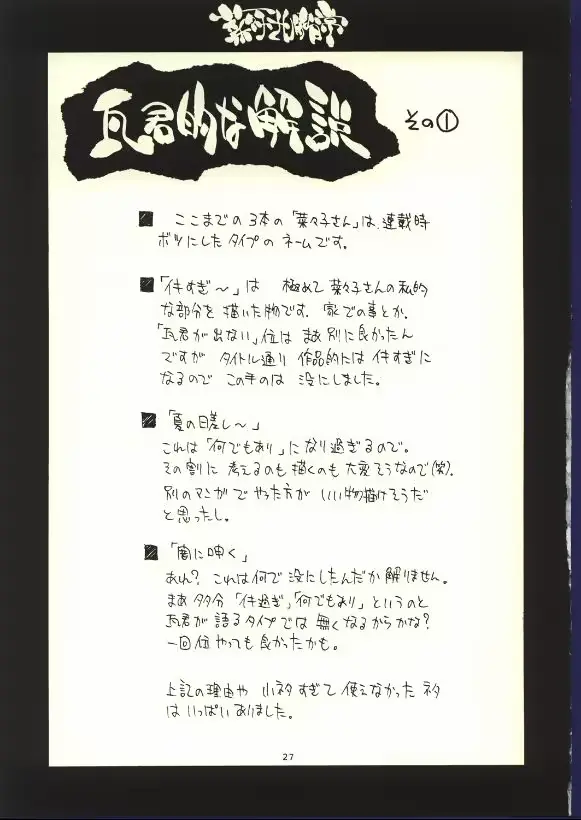 瓦君的な解説
その①
■ ここまでの3本の「菜々子さん」は、連載時
ボツにしたタイプのネームです。
■「イキすぎ〜」は 極めて菜々子さんの私的
な部分を描いた物です。家での事とか。
「瓦君が出ない」位は まあ別に良かったん
ですが タイトル通り 作品的にはイキすぎに
なるので この手のは 没にしました。
■「夏の日差し〜」
これは「何でもあり」になり過ぎるので。
その割に 考えるのも描くのも大変そうなので(笑)。
別のマンガで やった方が いい物描けそうだ
と思ったし。
■「闇に呻く」
あれ? これは何で没にしたんだか解りません。
まあ多分「イキ過ぎ」、「何でもあり」というのと
瓦君が語るタイプでは無くなるからかな?
一回位やっても良かったかも。
上記の理由や 小ネタすぎて使えなかったネタ
はいっぱいありました。
27